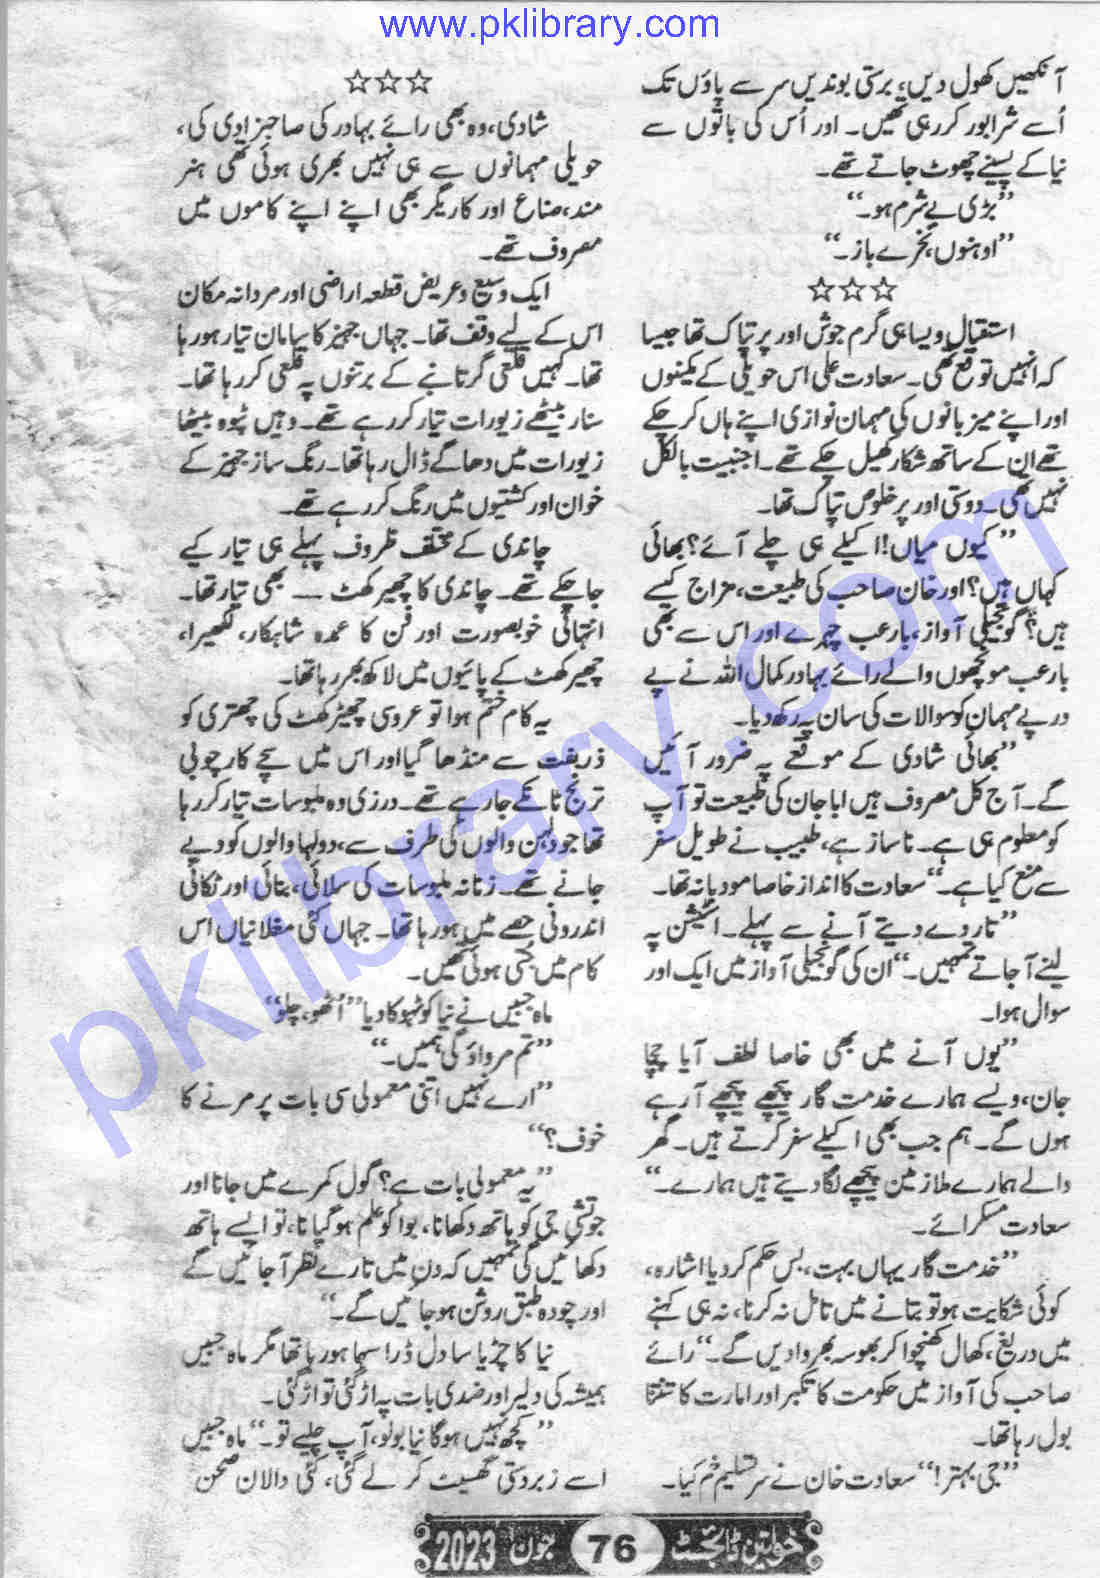 www.pklibrary.com
آنکھیں کھول دیں، برستی بوندیں سر سے پاؤں تک
اُسے شرابور کر رہی تھیں۔ اور اُس کی باتوں سے
نیا کے پسینے چھوٹ جاتے تھے۔
”بڑی بے شرم ہو۔“
”اوہنوں، نخرے باز۔“
☆☆☆
استقبال ویسا ہی گرم جوش اور پرتپاک تھا جیسا
کہ انہیں توقع تھی۔ سعادت علی اس حویلی کے مکینوں
اور اپنے میزبانوں کی مہمان نوازی اپنے ہاں کر چکے
تھے ان کے ساتھ شکار کھیل چکے تھے۔ اجنبیت بالکل
نہیں تھی۔ دوستی اور پرخلوص تپاک تھا۔
”کیوں میاں! اکیلے ہی چلے آئے؟ بھائی
کہاں ہیں؟ اور خان صاحب کی طبیعت، مزاج کیسے
ہیں؟ گونجیلی آواز، بارعب چہرے اور اس سے بھی
بارعب مونچھوں والے رائے بہادر کمال اللہ نے پے
در پے مہمان کو سوالات کی سان پہ رکھ دیا۔
”بھائی شادی کے موقعے پہ ضرور آئیں
گے۔ آج کل مصروف ہیں ابا جان کی طبیعت تو آپ
کو معلوم ہی ہے۔ ناساز ہے، طبیب نے طویل سفر
سے منع کیا ہے۔“ سعادت کا انداز خاصا مودبانہ تھا۔
”تار دے دیتے آنے سے پہلے۔ اسٹیشن پہ
لینے آجاتے تمہیں۔“ ان کی گونجیلی آواز میں ایک اور
سوال ہوا۔
”یوں آنے میں بھی خاصا لطف آیا چچا
جان، ویسے ہمارے خدمت گار پیچھے پیچھے آ رہے
ہوں گے۔ ہم جب بھی اکیلے سفر کرتے ہیں۔ گھر
والے ہمارے ملازمین پیچھے لگا دیتے ہیں ہمارے۔“
سعادت مسکرائے۔
”خدمت گار یہاں بہت، بس حکم کر دیا اشارہ،
کوئی شکایت ہو تو بتانے میں تامل نہ کرنا، نہ ہی کہنے
میں دریغ، کھال کھنچوا کر بھوسہ بھروا دیں گے۔“ رائے
صاحب کی آواز میں حکومت کا تکبر اور امارت کا تفتا
بول رہا تھا۔
”جی بہتر!“ سعادت خان نے سر تسلیم خم کیا۔
☆☆☆
شادی، وہ بھی رائے بہادر کی صاحبزادی کی،
حویلی مہمانوں سے ہی نہیں بھری ہوئی تھی ہنر
مند، صناع اور کاریگر بھی اپنے اپنے کاموں میں
مصروف تھے۔
ایک وسیع و عریض قطعہ اراضی اور مردانہ مکان
اس کے لیے وقف تھا۔ جہاں جہیز کا سامان تیار ہو رہا
تھا۔ کہیں قلعی گر تانبے کے برتنوں پہ قلعی کر رہا تھا۔
سنار بیٹھے زیورات تیار کر رہے تھے۔ وہیں پٹوہ بیٹھا
زیورات میں دھاگے ڈال رہا تھا۔ رنگ ساز جہیز کے
خوان اور کشتیوں میں رنگ کر رہے تھے۔
چاندی کے مختلف ظروف پہلے ہی تیار کیے
جا چکے تھے۔ چاندی کا چھپر کھٹ ۔۔۔ بھی تیار تھا۔
انتہائی خوبصورت اور فن کا عمدہ شاہکار، لکھیرا،
چھپر کھٹ کے پائیوں میں لاکھ بھر رہا تھا۔
یہ کام ختم ہوا تو عروسی چھپر کھٹ کی چھتری کو
زربفت سے منڈھا گیا اور اس میں سچے کارچوبی
ترنج ٹانکے جا رہے تھے۔ درزی وہ ملبوسات تیار کر رہا
تھا جو دلہن والوں کی طرف سے، دولہا والوں کو دیے
جانے تھے۔ زنانہ ملبوسات کی سلائی، بنائی اور ٹکائی
اندرونی حصے میں ہو رہا تھا۔ جہاں کئی مغلانیاں اس
کام میں جُتی ہوئی تھیں۔
ماہ جبیں نے نیا کو ٹہوکا دیا ”اُٹھو، چلو“
”تم مرواؤ گی ہمیں۔“
”ارے نہیں اتنی معمولی سی بات پر مرنے کا
خوف؟“
”یہ معمولی بات ہے؟ گول کمرے میں جانا اور
جوتشی جی کو ہاتھ دکھانا، بوا کو علم ہو گیا نا، تو ایسے ہاتھ
دکھائیں گی تمہیں کہ دن میں تارے نظر آجائیں گے
اور چودہ طبق روشن ہو جائیں گے۔“
نیا کا چڑیا سا دل ڈرا سہما ہو رہا تھا مگر ماہ جبیں
ہمیشہ کی دلیر اور ضدی بات پہ اڑ گئی تو اڑ گئی۔
”کچھ نہیں ہو گا نیا بولو، آپ چلیے تو۔“ ماہ جبیں
اسے زبردستی گھسیٹ کر لے گئی، کئی دالان صحن
خواتین ڈائجسٹ 76 جون 2023
pklibrary.com